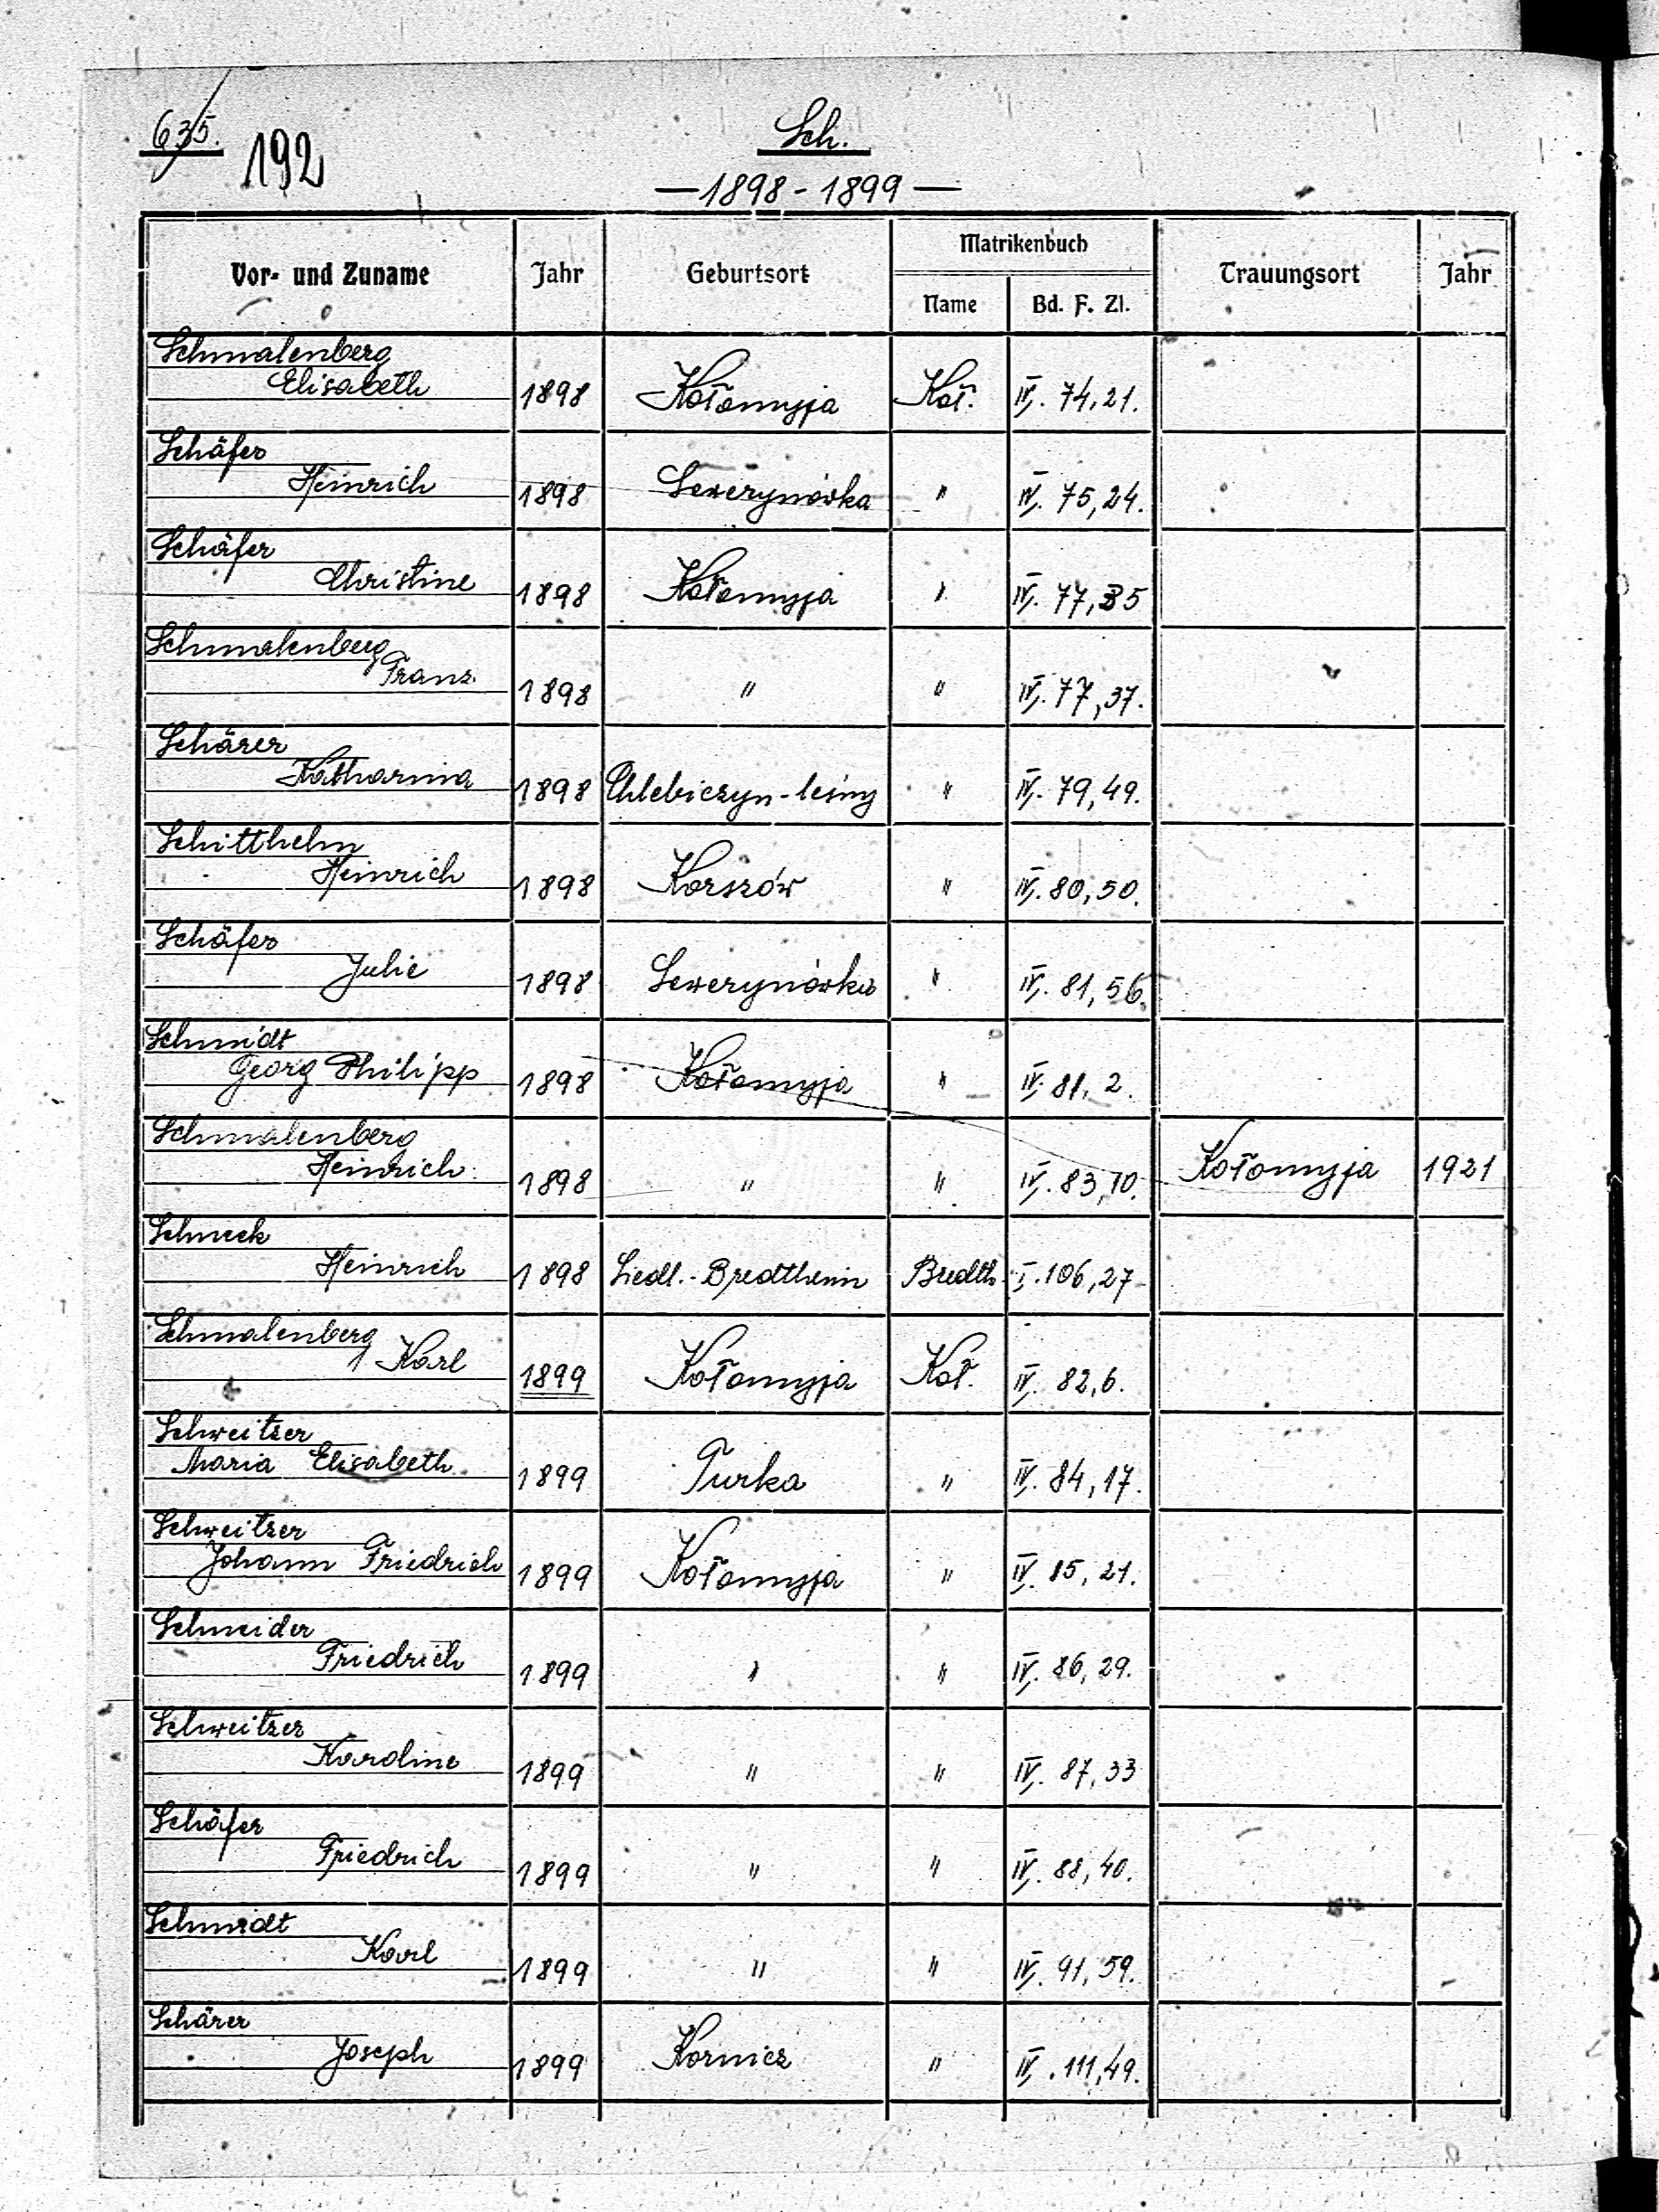 635.
192
Sch.
— 1898 - 1899 —
Vor- und Zuname Jahr Geburtsort Matrikenbuch Trauungsort Jahr
Name Bd. F. Zl.
Schmalenberg
Elisabeth 1898 Kołomyja Koł. IV. 74,21.
Schäfer
Heinrich 1898 Sewerynówka " IV. 75,24.
Schäfer
Christine 1898 Kołomyja " IV. 77,35
Schmalenberg
Franz 1898 " " IV. 77,37.
Schärer
Katharina 1898 Chlebiczyn-leśny " IV. 79,49.
Schitthelm
Heinrich 1898 Korszów " IV. 80,50.
Schäfer
Julie 1898 Sewerynówka " IV. 81,56.
Schmidt
Georg Philipp 1898 Kołomyja " IV. 81,2.
Schmalenberg
Heinrich 1898 " " IV. 83,10. Kołomyja 1921
Schneck
Heinrich 1898 Siedl.-Bredtheim Bredth. I. 106,27
Schmalenberg
Karl 1899 Kołomyja Koł. IV. 82,6.
Schweitzer
Maria Elisabeth 1899 Turka " IV. 84,17.
Schweitzer
Johann Friedrich 1899 Kołomyja " IV. 85,21.
Schneider
Friedrich 1899 " " IV. 86,29.
Schweitzer
Karoline 1899 " " IV. 87,33
Schäfer
Friedrich 1899 " " IV. 88,40.
Schmidt
Karl 1899 " " IV. 91,59.
Schärer
Joseph 1899 Kornicz " IV. 111,49.